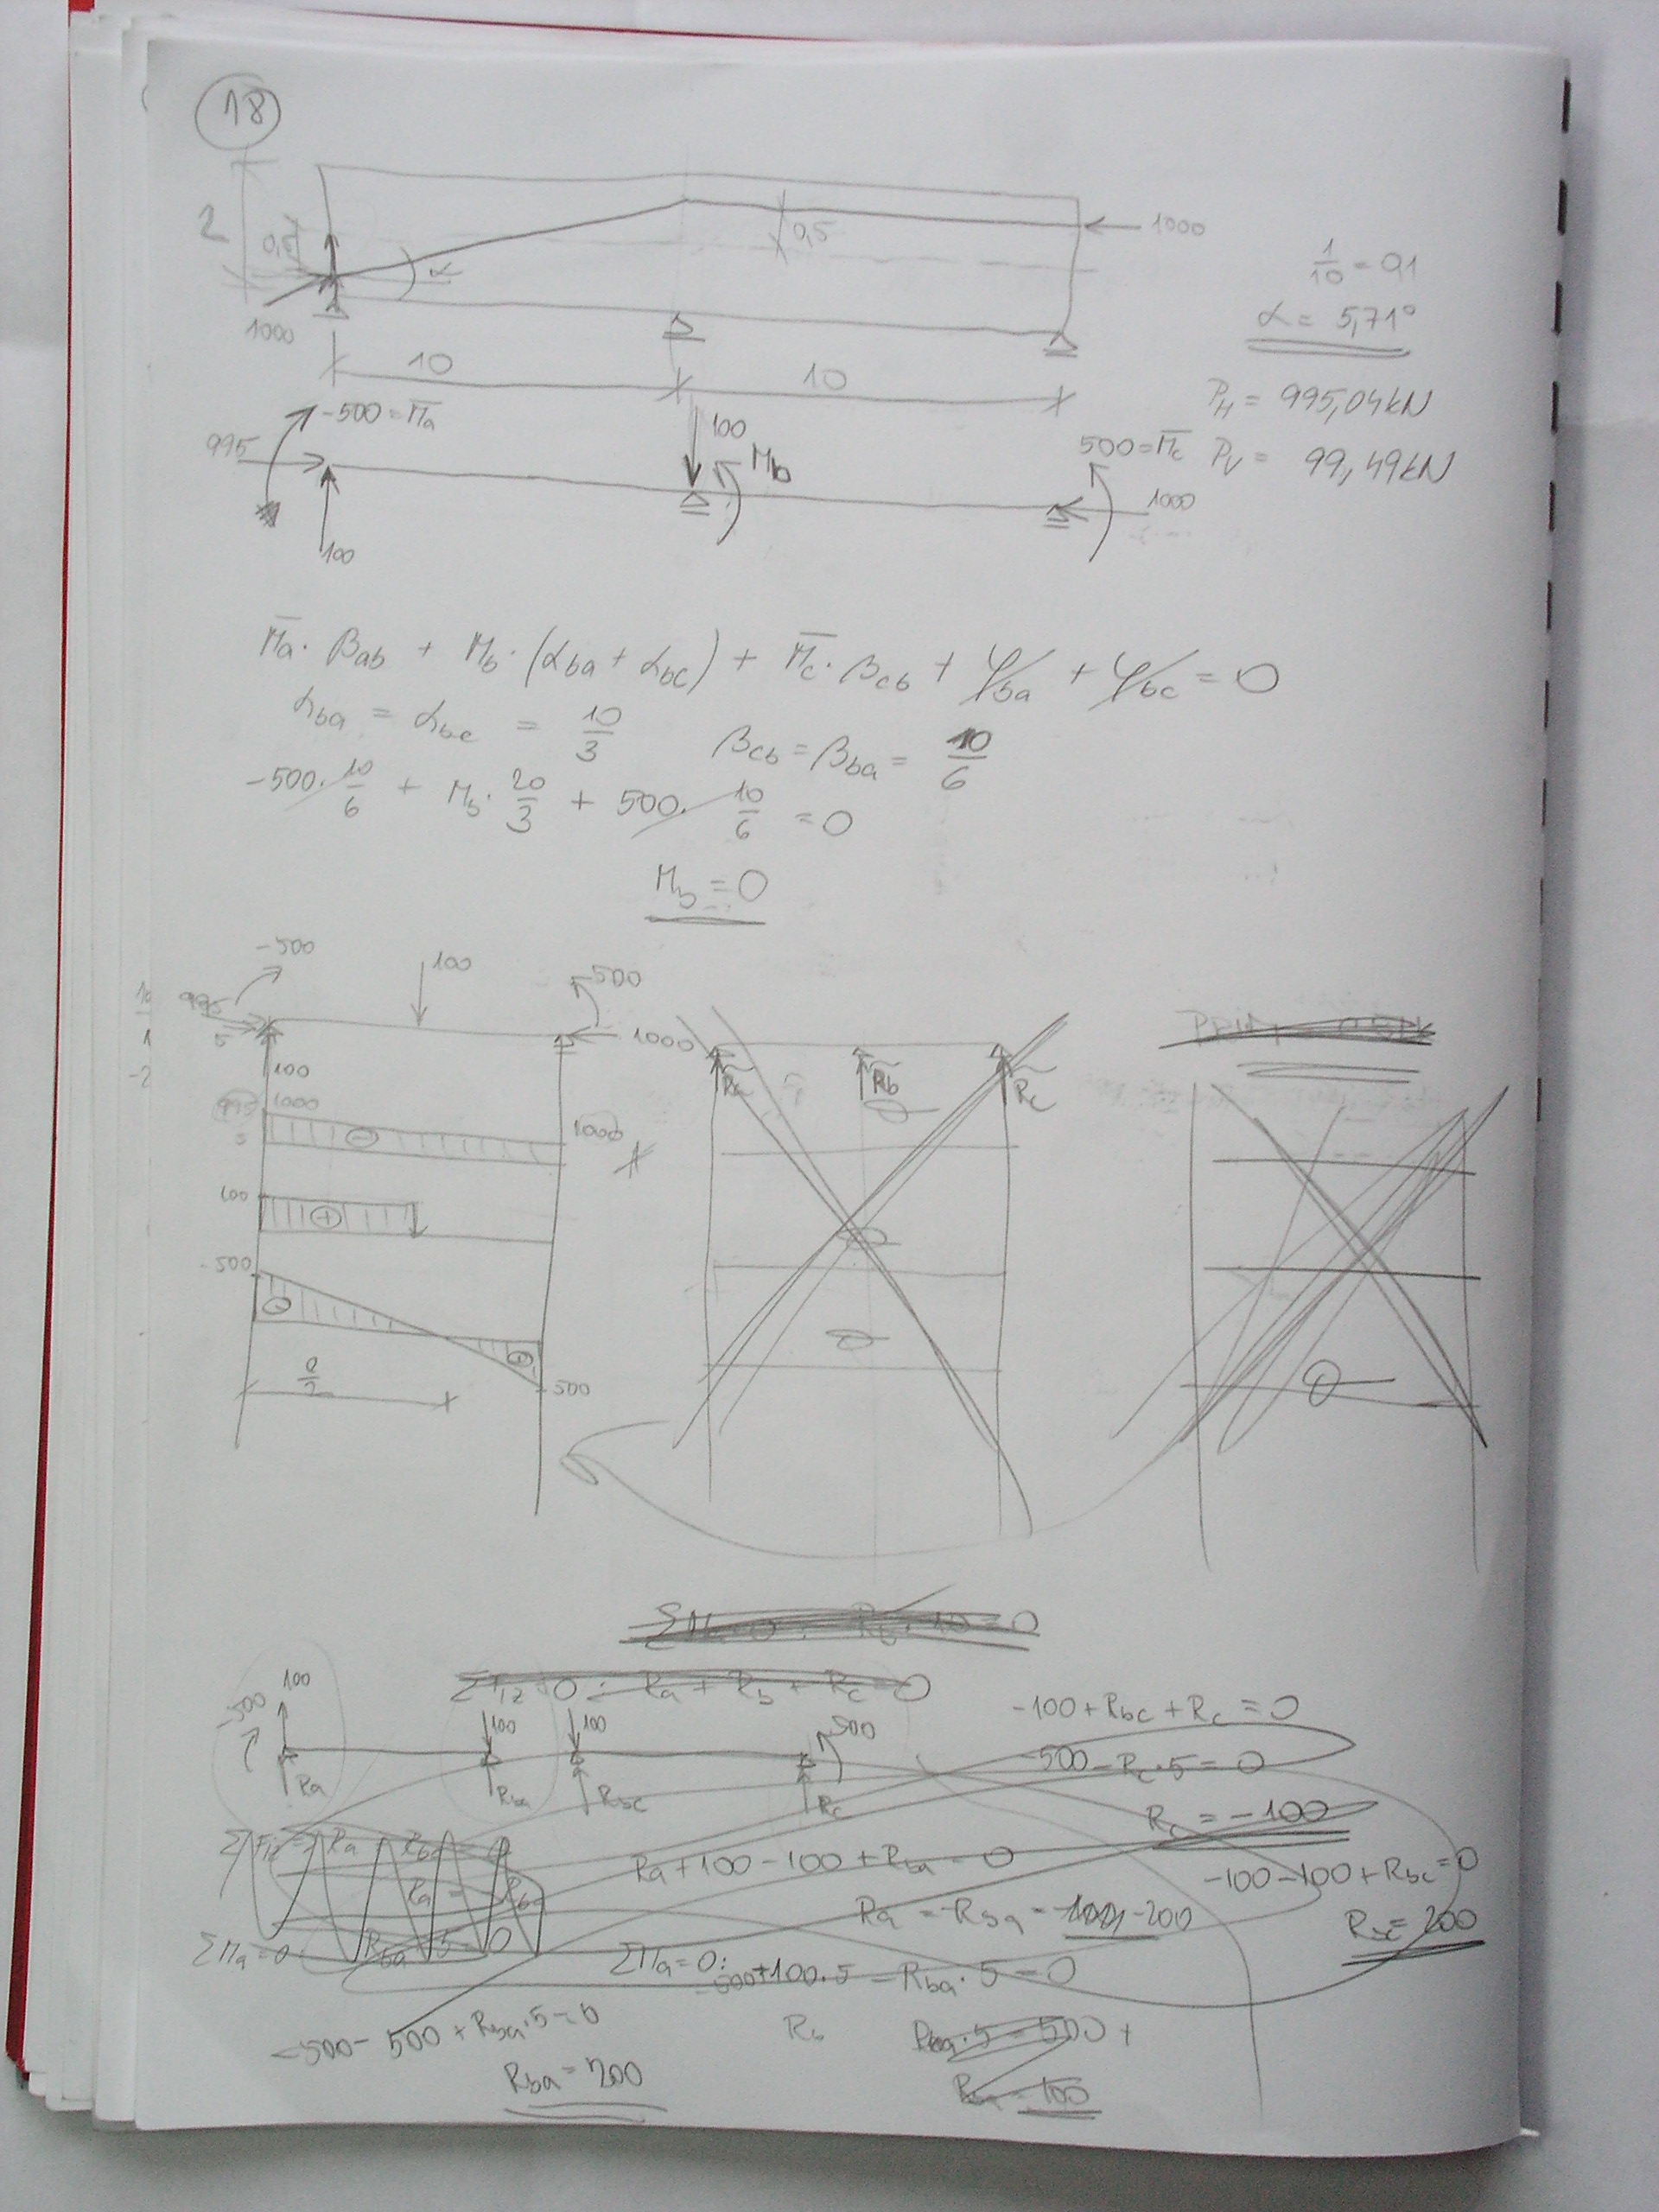 18
2
0,5
α
0,5
1000
1000
1/10 = 0,1
α = 5,71°
10
10
P_H = 995,04 kN
P_V = 99,49 kN
-500 = M̅a
995
100
Mb
500 = M̅c
1000
100
M̅a · βab + Mb · (αba + αbc) + M̅c · βcb + φba + φbc = 0
αba = αbc = 10/3
βcb = βba = 10/6
-500 · 10/6 + Mb · 20/3 + 500 · 10/6 = 0
Mb = 0
-500
100
500
995
5
1000
100
1000
1000
100
+
-500
500
Rb
Rc
ΣFiz = 0 : Ra + Rb + Rc = 0
-500
100
100
100
500
Ra
Rba
Rbc
Rc
-100 + Rbc + Rc = 0
-500 - Rc · 5 = 0
Rc = -100
Ra + 100 - 100 + Rba = 0
-100 - 100 + Rbc = 0
Ra = -Rba = -200
Rbc = 200
ΣMa = 0
Rba 5 = 0
ΣMa = 0:
-500 + 100 · 5 - Rba · 5 = 0
-500 - 500 + Rba · 5 = 0
Rb
Rba · 5 = 500 +
Rba = 200
Rba = 100